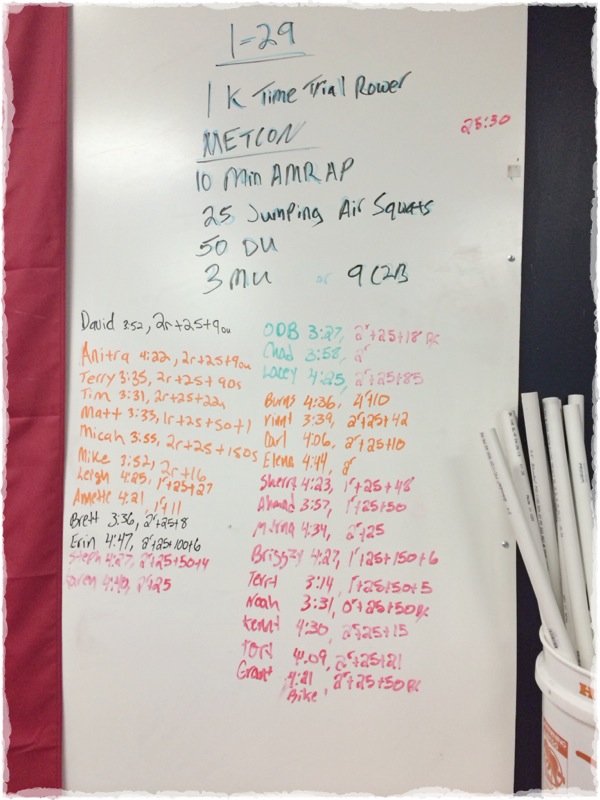 1-29
1K Time Trial Rower
25:30
METCON
10 Min AMRAP
25 Jumping Air Squats
50 DU
3 MU or 9 C2B
David 3:52, 2r+25+9 DU
Anitra 4:22, 2r+25+9DU
Terry 3:35, 2r+25+90s
Tim 3:31, 2r+25+22u
Matt 3:33, 1r+25+50+1
Micah 3:55, 2r+25+150s
Mike 3:52, 2r+16
Leigh 4:25, 1r+25+27
Annette 4:21, 1r+11
Brett 3:36, 2r+25+8
Erin 4:47, 2r+25+100+6
Steph 4:27, 2r+25+50+4
4:40, 2r+25
ODB 3:27, 2r+25+18
Chad 3:58, 2r
Lacey 4:25, 2r+25+85
Burns 4:36, 4r+10
3:39, 2r+25+42
Carl 4:06, 2r+25+10
Elena 4:44, 2r
Sherri 4:23, 1r+25+48
Ahmad 3:57, 1r+25+50
4:34, 2r+25
Briggzy 4:27, 1r+25+150+6
3:14, 1r+25+50+5
Noah 3:31, 0r+25+50
4:30, 2r+25+15
Tori 4:09, 2r+25+21
Grant 4:21 2r+25+50
Bike